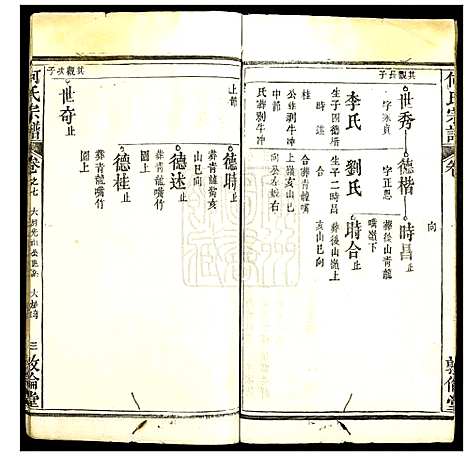 何氏宗譜
卷
敦倫堂
向
其觀長子
世秀
字永貞
李氏
生子四德楷
時
桂
公葬剥牛冲
中節
氏葬剥牛冲
德楷
字正恩
劉氏
生子二時昌
時合
合葬青龍嘴
上嶺亥山巳
向公左婆右
時昌止
葬後山青龍
嘴嶺下
時合止
葬後山嶺上
亥山巳向
上節
德時止
葬青龍窝亥
山巳向
德述止
葬青龍嘴竹
園上
德桂止
葬青龍嘴竹
園上
其觀次子
世奇止
何氏宗譜
卷之七
三
敦倫堂